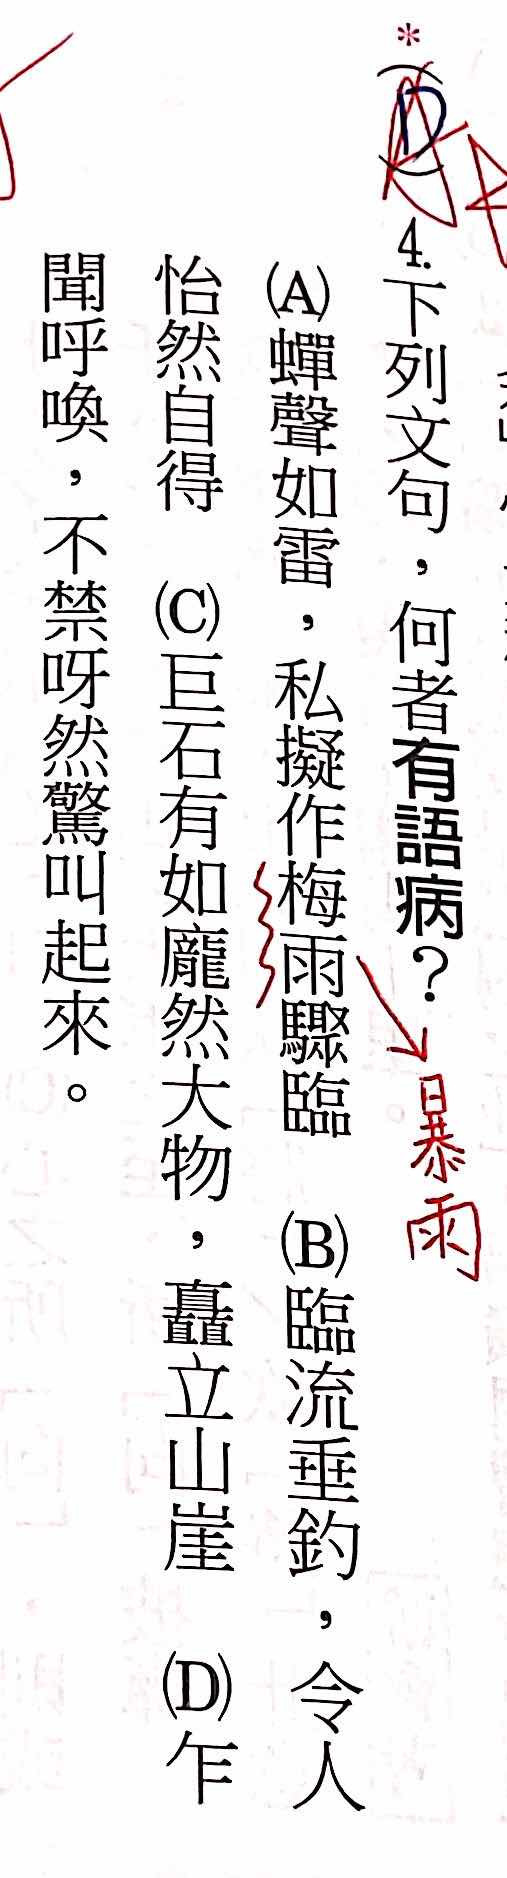 *
(D) A
4.下列文句，何者有語病？
暴雨
(A)蟬聲如雷，私擬作梅雨驟臨 (B)臨流垂釣，令人
怡然自得 (C)巨石有如龐然大物，矗立山崖 (D)乍
聞呼喚，不禁呀然驚叫起來。